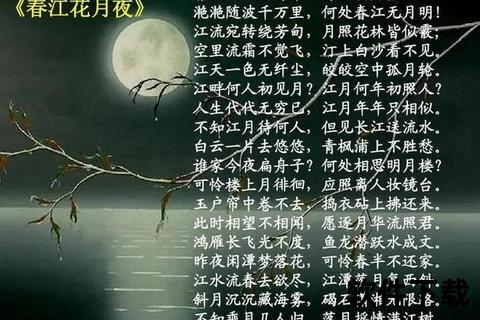 《春江花月夜》
滟滟随波千万里，何处春江无月明！
江流宛转绕芳甸，月照花林皆似霰；
空里流霜不觉飞，汀上白沙看不见。
江天一色无纤尘，皎皎空中孤月轮。
江畔何人初见月？江月何年初照人？
人生代代无穷已，江月年年只相似。
不知江月待何人，但见长江送流水。
白云一片去悠悠，青枫浦上不胜愁。
谁家今夜扁舟子？何处相思明月楼？
可怜楼上月徘徊，应照离人妆镜台。
玉户帘中卷不去，捣衣砧上拂还来。
此时相望不相闻，愿逐月华流照君。
鸿雁长飞光不度，鱼龙潜跃水成文。
昨夜闲潭梦落花，可怜春半不还家。
江水流春去欲尽，江潭落月复西斜。
斜月沉沉藏海雾，碣石 无限
不知乘月几人归，落月摇情满江树
软件下载